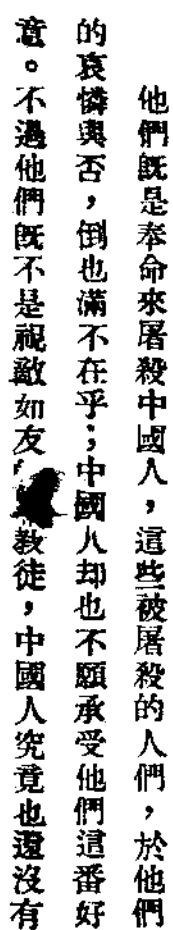 他們既是奉命來屠殺中國人，這些被屠殺的人們，於他們
的哀憐與否，倒也滿不在乎；中國人却也不願承受他們這番好
意。不過他們既不是視敵如友教徒，中國人究竟也還沒有